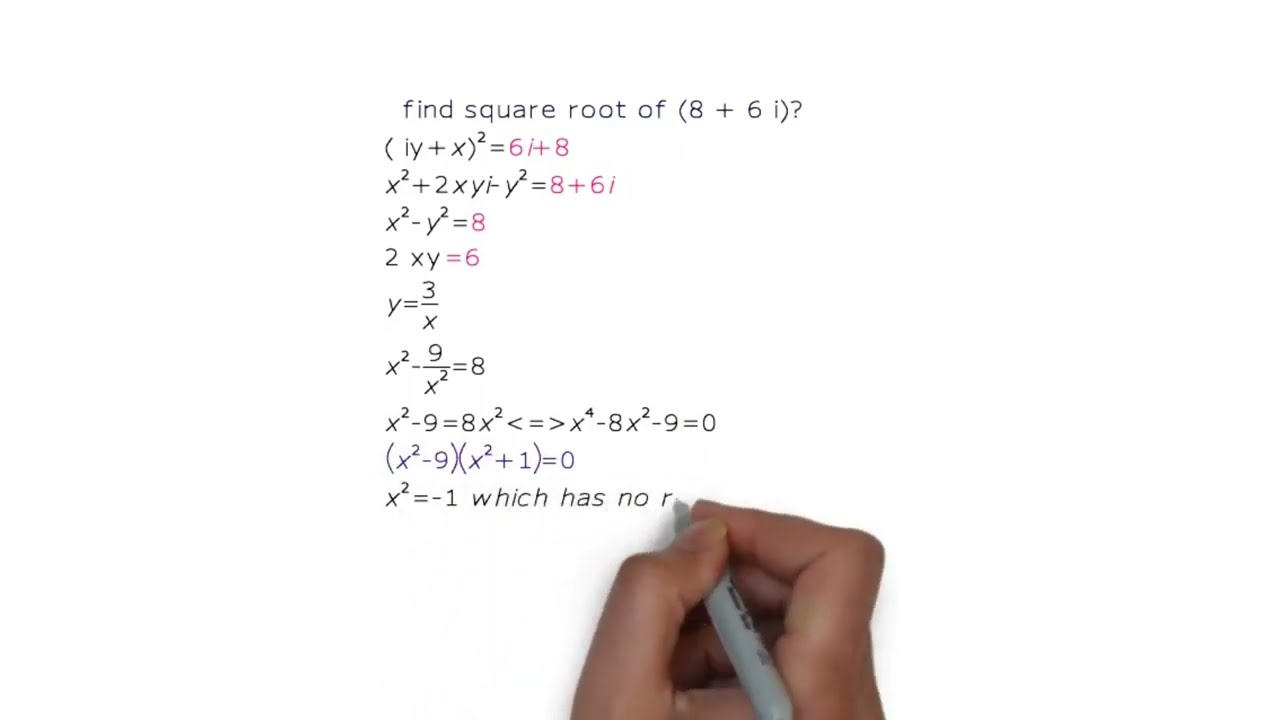 find square root of (8 + 6 i)?
( iy + x)² = 6i+8
x²+2xyi-y²=8+6i
x²-y²=8
2 xy=6
y=3/x
x²-9/x²=8
x²-9=8x²<=>x⁴-8x²-9=0
(x²-9)(x²+1)=0
x²=-1 which has no r